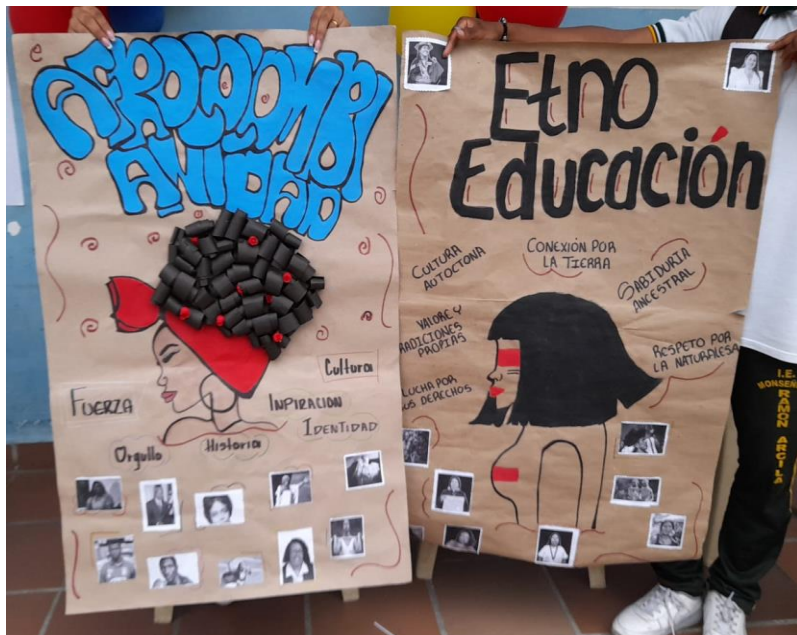 AFROCOLOMBI
ANIDAD
Cultura
FUERZA
INPIRACION
IDENTIDAD
Orgullo
Historia
Etno
Educación
CULTURA
AUTOCTONA
CONEXIÓN POR
LA TIERRA
SABIDURIA
ANCESTRAL
VALORE Y
RADICIONES
PROPIAS
RESPETO POR
LA NATURALESA
LUCHA POR
US DERECHOS
I.E.
MONSEÑ
RAMON ARCILA